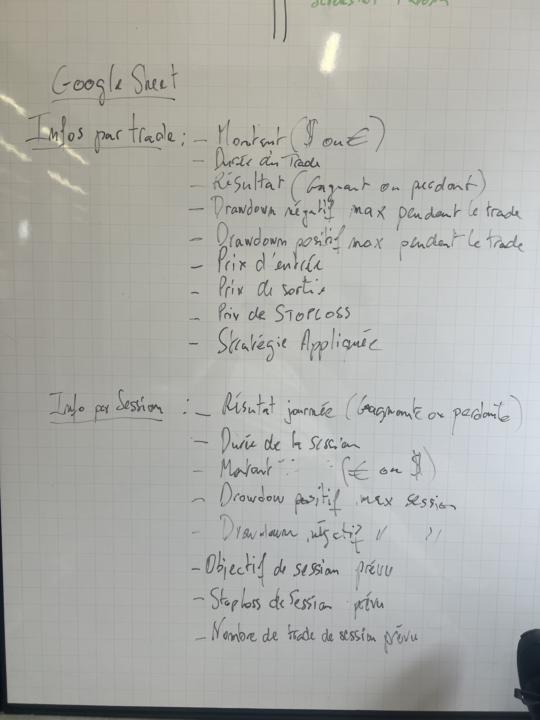 Google Sheet
Infos par trade : - Montant ($ ou €)
- Durée du Trade
- Résultat (Gagnant ou perdant)
- Drawdown négatif max pendant le trade
- Drawdown positif max pendant le trade
- Prix d'entrée
- Prix de sortie
- Prix de STOPLOSS
- Stratégie Appliquée
Info par Session : - Résultat journée (Gagnante ou perdante)
- Durée de la session
- Montant " " (€ ou $)
- Drawdow positif max session
- Drawdown négatif " "
- Objectif de session prévu
- Stoploss de Session prévu
- Nombre de trade de session prévu